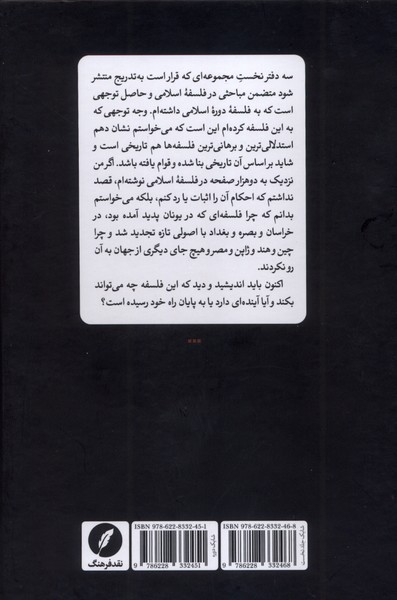 سه دفتر نخستِ مجموعه‌ای که قرار است به‌تدریج منتشر
شود متضمن مباحثی در فلسفهٔ اسلامی و حاصل توجهی
است که به فلسفهٔ دورهٔ اسلامی داشته‌ام. وجه توجهی که
به این فلسفه کرده‌ام این است که می‌خواستم نشان دهم
استدلالی‌ترین و برهانی‌ترین فلسفه‌ها هم تاریخی است و
شاید بر اساس آن تاریخی بنا شده و قوام یافته باشد. اگر من
نزدیک به دوهزار صفحه در فلسفهٔ اسلامی نوشته‌ام، قصد
نداشتم که احکام آن را اثبات یا رد کنم، بلکه می‌خواستم
بدانم که چرا فلسفه‌ای که در یونان پدید آمده بود، در
خراسان و بصره و بغداد با اصولی تازه تجدید شد و چرا
چین و هند و ژاپن و مصر و هیچ جای دیگری از جهان به آن
رو نکردند.
اکنون باید اندیشید و دید که این فلسفه چه می‌تواند
بکند و آیا آینده‌ای دارد یا به پایان راه خود رسیده است؟
***
نقد فرهنگ
ISBN 978-622-8332-45-1
9 786228 332451
شابک دوره
ISBN 978-622-8332-46-8
9 786228 332468
شابک جلد نخست